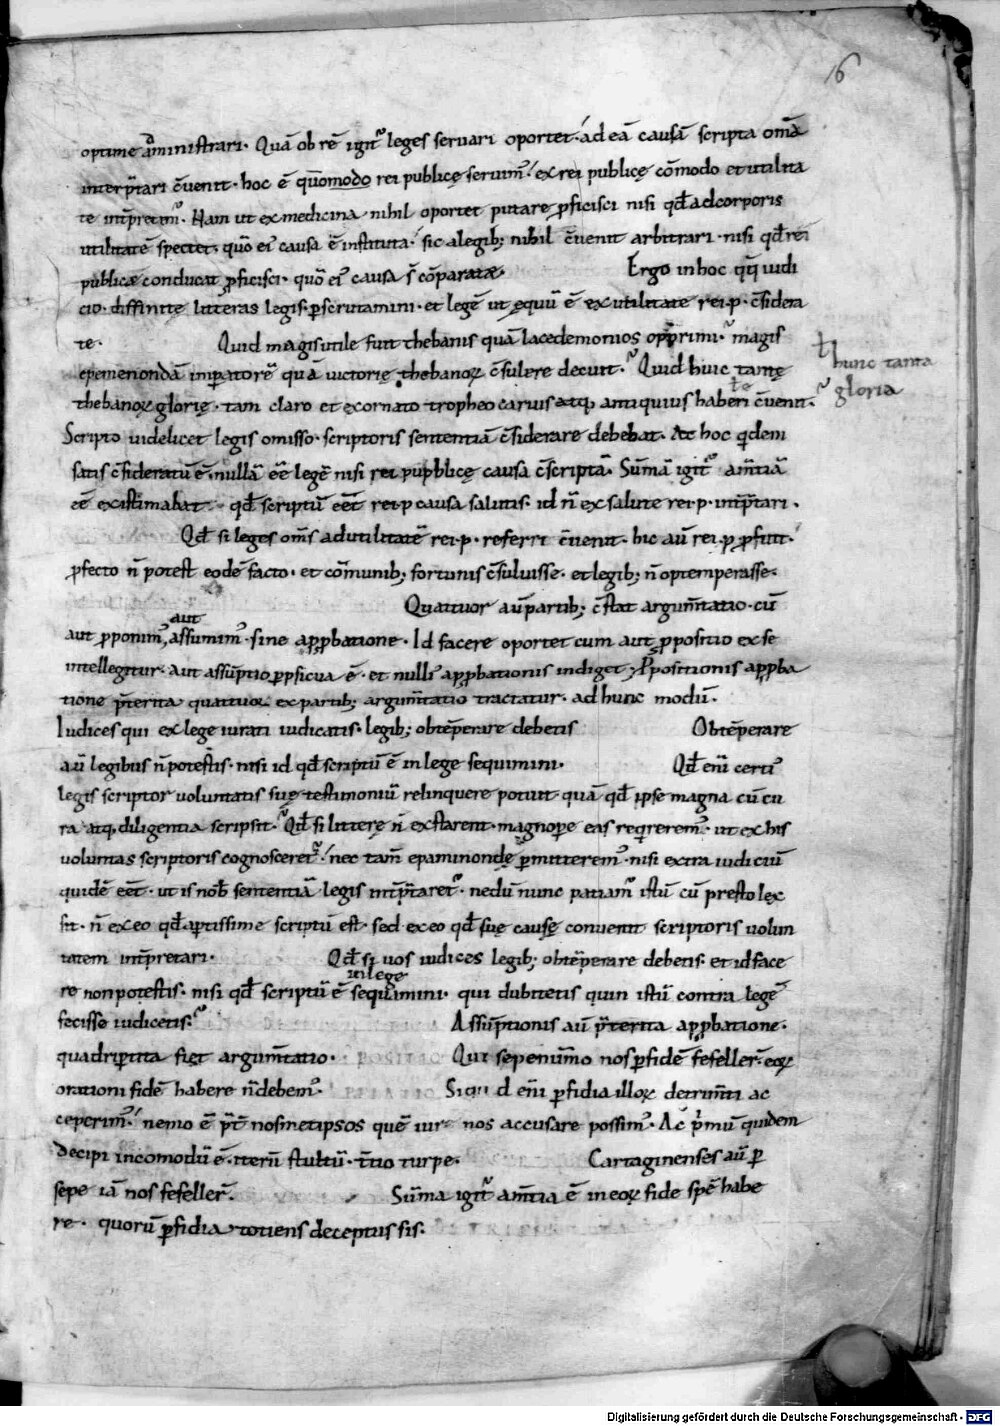 6
optime a͞ministrari. Quā ob rē igit᷑ leges servari oportet. ad eā causā scripta om̄a
interp̄tari c̄uenit. hoc ē quōmodo rei publicę servim᷒. ex rei publicę cōmodo et utilita
te int̄pretem᷒. Nam ut ex medicina nihil oportet putare ꝓficisci nisi qđ ad corporis
utilitatē spectet. quō ei᷒ causa ē instituta. sic a legib; nihil c̄uenit arbitrari. nisi qđ rei
publicæ conducat ꝓficisci. quō ei᷒ causa s̄ cōparatæ. Ergo in hoc qq̄ iudi
cio. diffinite litteras legis. ꝑscrutamini. et legē ut ęquū ē ex utilitate rei.p. c̄sidera
te. Quid magis utile fuit thebanis quā lacedemonios opprimi. magis
epemenondā imꝑatorē quā victorię thebanoꝝ c̄sulere decuit. Quid huic tantę
ł hunc tanta
gloria
thebanoꝝ glorię. tam claro et exornato tropheo carius atq; antiquius haberi c̄uenit.
ł e
Scripto uidelicet legis omisso. scriptoris sententiā c̄siderare debebat. At hoc qͥdem
satis c̄sideratū ē. nullā eē̄ legē nisi rei pupblicę causa c̄scriptā. Sūmā igit᷑ am̄tiā
eē̄ existimabat. qđ scriptū eēt rei.p causa salutis. id n̄ ex salute rei.p. int̄p̄tari.
Qđ si leges om̄s ad utilitatē rei.p. referri c̄uenit. hic aū rei.p ꝓfuit.
ꝓfecto n̄ potest eodē facto. et cōmunib; fortunis c̄suluisse. et legib; n̄ optemperasse.
Quattuor aū partib; c̄stat argum̄tatio. cū
aut
aut ꝓponim᷒, assumim᷒. sine apꝓbatione. Id facere oportet cum aut ꝓpositio ex se
intellegitur. aut assūptio ꝑspicua ē. et nulli᷒ apꝓbationis indiget; Ꝓpositionis apꝓba
tione p̄terita quattuor ex partib; argum̄tatio tractatur. ad hunc modū.
Iudices qui ex lege iurati iudicatis. legib; obtēperare debetis Obtēperare
aū legibus n̄ potestis. nisi id qđ scriptū ē in lege sequimini. Qđ eni certi᷒
legis scriptor uoluntatis suę testimoniū relinquere potuit quā qđ ipse magna cū cu
ra atq; diligentia scripsit. Qđ si litterę n̄ exstarent. magnopere eas reqͥrerem᷒. ut ex his
uoluntas scriptoris cognosceret᷑. nec tam̄ epaminondę ꝑmitterem᷒. nisi extra iudiciū
quidē eēt. ut is nob̄ sententiā legis int̄p̄taret᷑. nedū nunc patiam᷑ istū cū presto lex
sit. n̄ ex eo qđ aptissime scriptū est. sed ex eo qđ suę causę conuenit scriptoris uolun
tatem int̄pretari. Qđ si uos iudices legib; obtēperare debetis. et id face
in lege
re non potestis. nisi qđ scriptū ē sequimini. qui dubitetis quin istū contra legē
fecisse iudicetis. Assūptionis aū p̄terita apꝓbatione.
quadriꝑtita fiet argum̄tatio. Qui sepenum̄o nos ꝑ fidē fefeller̄. eoꝝ
orationi fidē habere n̄ debem᷒. Siquid eni ꝑfidia illoꝝ detrim̄ti ac
ceperim᷒. nemo ē p̄t̄ nosmetipsos quē iure nos accusare possim᷒. Ac p̄mū quidem
decipi incomodū ē. iterū stultū. t̄tio turpe. Cartaginenses aū ꝑ
sepe iā nos fefeller̄. Sūma igit᷑ am̄tia ē in eoꝝ fide spē habe
re. quorū ꝑfidia totiens deceptus sis.
Digitalisierung gefördert durch die Deutsche Forschungsgemeinschaft - DFG